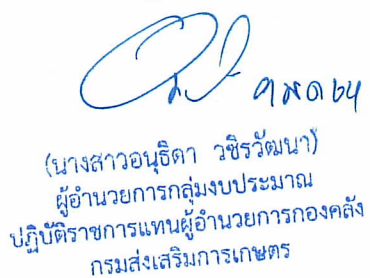 (นางสาวอนุธิดา วชิรวัฒนา)
ผู้อำนวยการกลุ่มงบประมาณ
ปฏิบัติราชการแทนผู้อำนวยการกองคลัง
กรมส่งเสริมการเกษตร